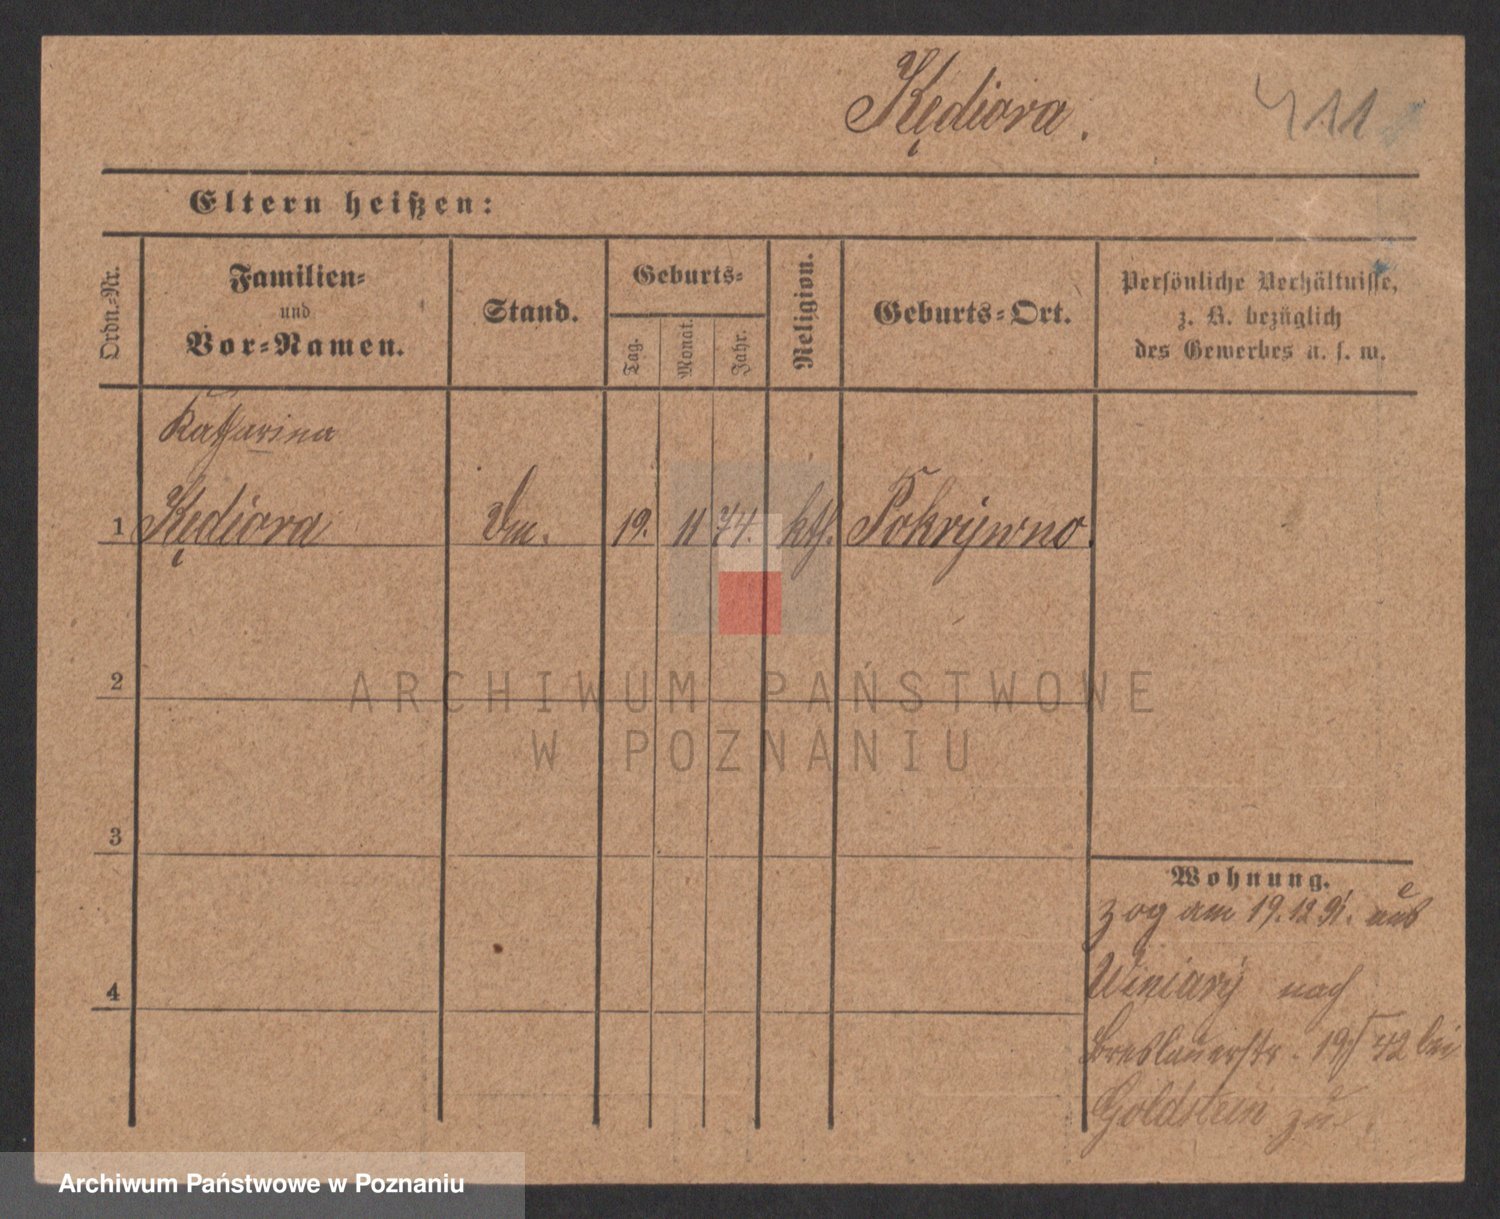 Kędiora.
411
Eltern heißen:
Ordn.-Nr.
Familien-
und
Vor-Namen.
Stand.
Geburts-
Tag.
Monat.
Jahr.
Religion.
Geburts-Ort.
Persönliche Verhältnisse,
z. B. bezüglich
des Gewerbes u. s. w.
Katharina
1 Kędiora Dm. 19. 11 74. kth. Pokrzywno.
2
3
4
Wohnung.
zog am 19.12.91. aus
Winiary nach
Breslauerstr. 19 bei
Goldstein zu
ARCHIWUM PAŃSTWOWE
W POZNANIU
Archiwum Państwowe w Poznaniu